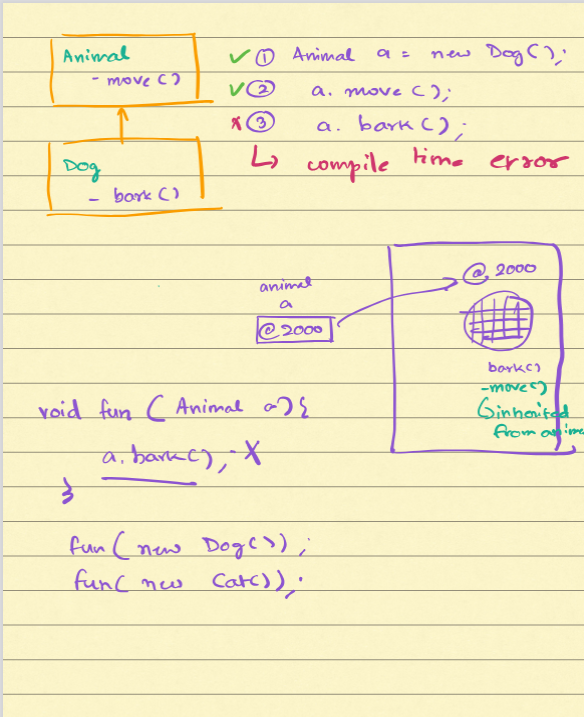 Animal
- move ()
Dog
- bark ()
✓ ① Animal a = new Dog();
✓ ② a. move ();
x ③ a. bark ();
↳ compile time error
animal
a
@ 2000
@ 2000
bark()
-move()
inherited
from anima
void fun ( Animal a) {
a. bark(); X
}
fun ( new Dog());
fun( new Cat());